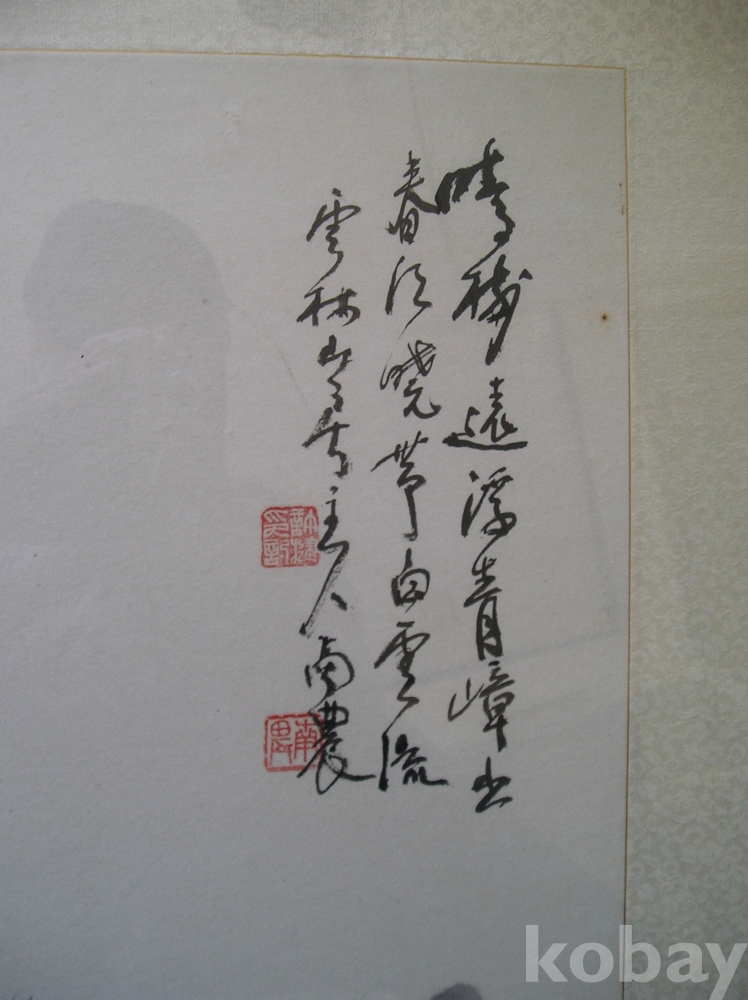 晴樹遠浮青嶂出
春江曉帶白雲流
雲林山房主人南農
許楗
南農
kobay